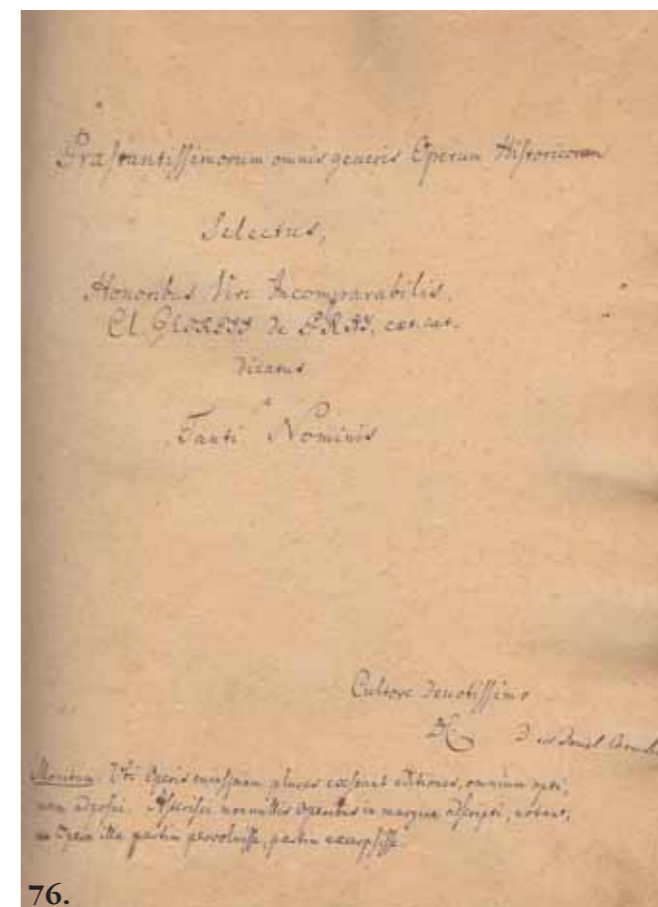 Præstantissimorum omnis generis Operum Historicorum
Selectus,
Honoribus Viri Incomparabilis,
Cl. GEORGII de PRAY, cæt. cæt.
dicatus
a
Tanti Nominis
Cultore devotissimo
Monitum. Ubi Operis cujuspiam plures exstant editiones, omnium opti,
mam adposui. Asterisci nonnullis Operibus in margine adscripti, notant,
me Opera illa partim pervolvisse, partim excerpsisse
76.